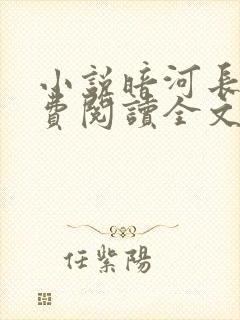 小説暗河長
費閱讀全文
任紫陽